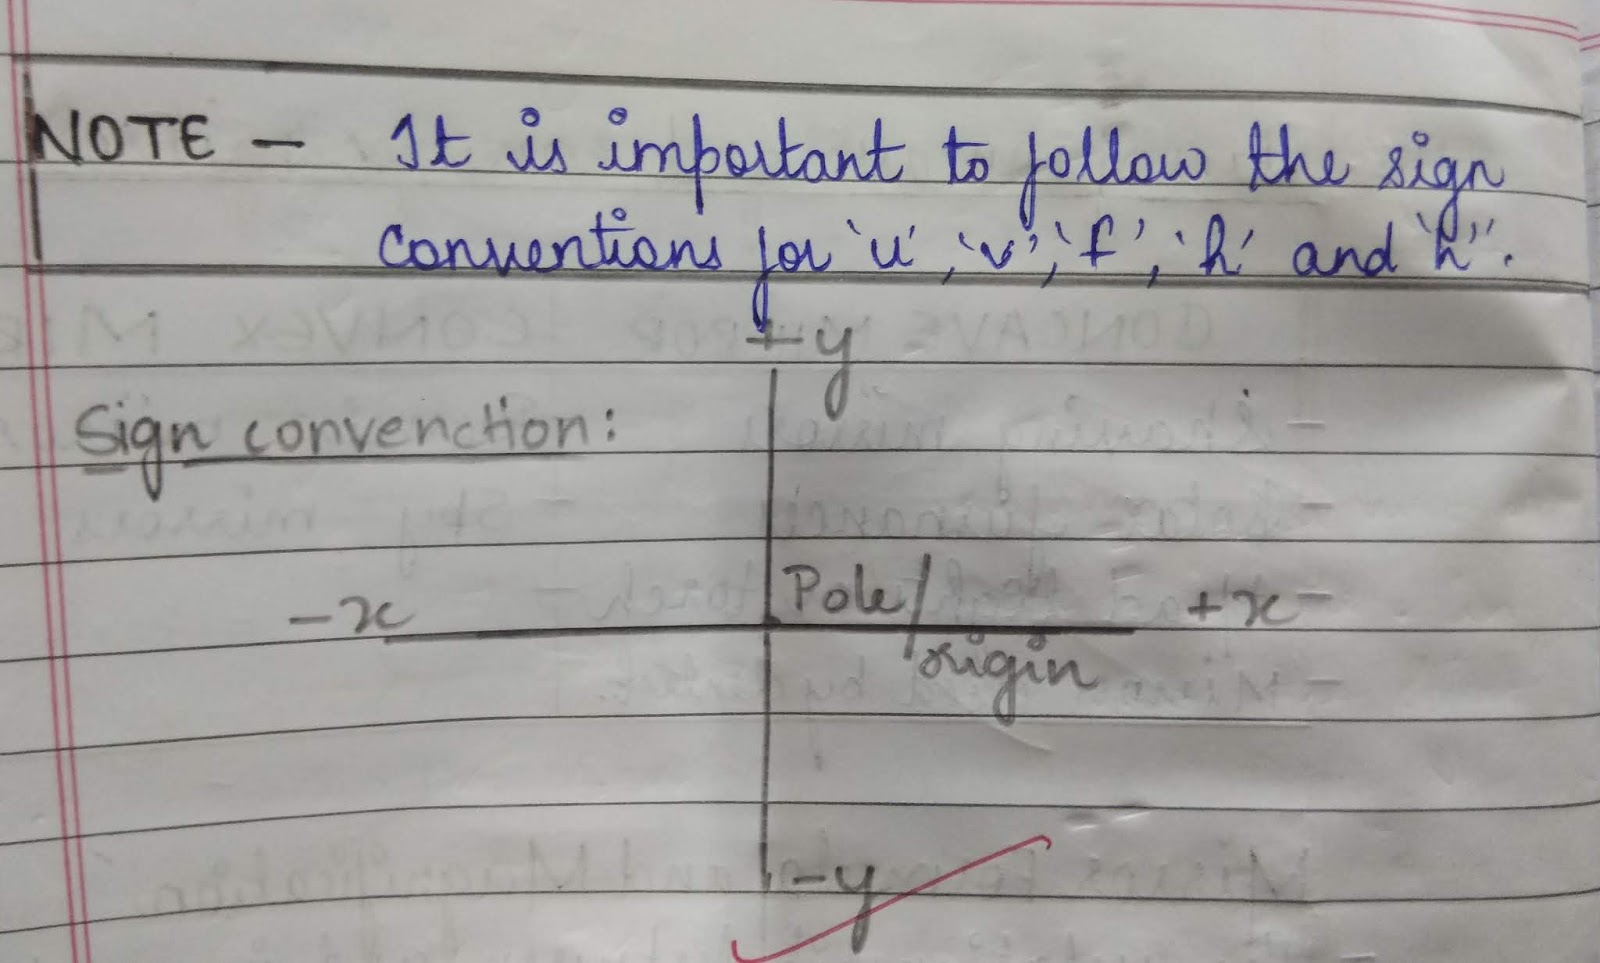 NOTE - It is important to follow the sign
conventions for 'u', 'v', 'f', 'h' and 'h''.
+y
Sign convenction:
-x Pole/ +x
origin
-y